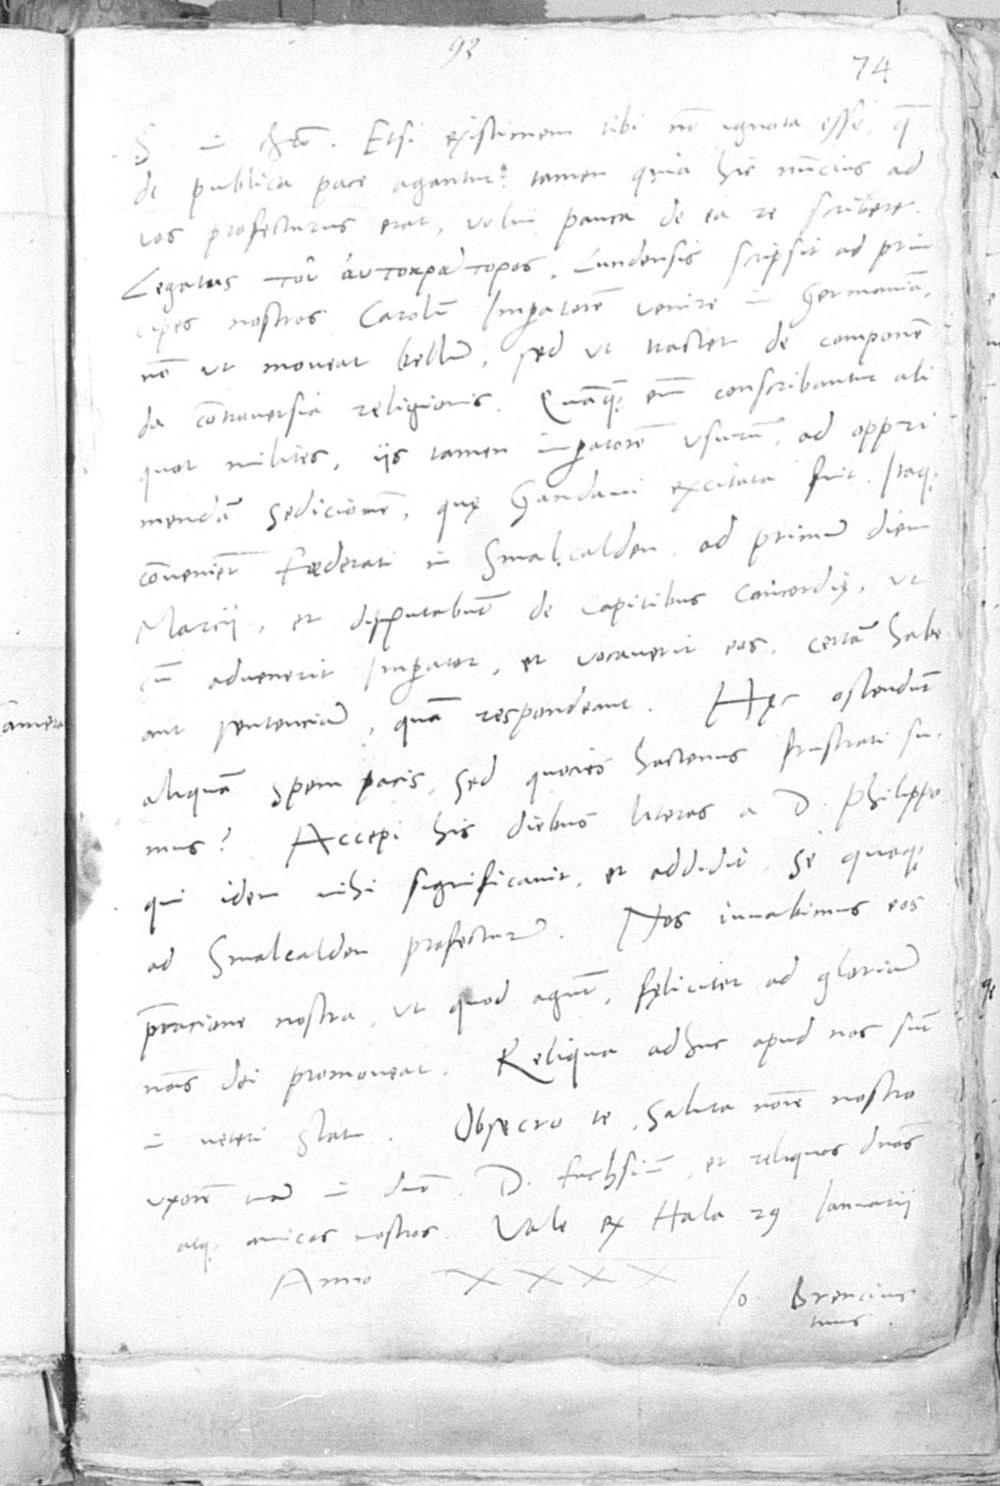 92
74
S. in chro. Etsi existimem tibi nō ignota esse, q̄
de publica pace agantur: tamen quia hic nūcius ad
vos profecturus erat, volui pauca de ea re scribere.
Legatus τοῦ ἀυτοκράτορος, Lundensis scripsit ad prin
cipes nostros Carolū Imperatorē venire in Germaniā,
nō ut moveat bellū, sed ut tractet de componē
da cōtroversia religionis. Quāq̄ em̄ conscribantur ali
quot milites, iis tamen imperatorē usurū, ad oppri
mendā sedicionē, quę Gandavi excitata fuit. Itaq;
cōvenient Fœderati in Smalcalden ad primū diem
Marcii, et disputabūt de capitibus concordię, ut
cū advenerit Imperator, et vocaverit eos, certā habe
ant sentenciā, quā respondeant. Hęc ostendūt
aliquā spem pacis, sed quocies hactenus frustrati su
mus? Accepi his diebus literas a D. Philippo
qui idem mihi significavit, et addidit, se quoq;
ad Smalcalden profecturū. Nos iuvabimus eos
p̄cacione nostra, ut quod agūt, fęliciter ad gloriā
nōis dei promoveat. Reliqua adhuc apud nos sūt
in veteri statu. Obsecro te, saluta noīe nostro
uxorē tuā in dno, D. Fuchsiū, et reliquos dnos
atq; amicos nostros. Vale ex Hala 29 Ianuarii
Anno XXXX
Io. Brencius
tuus.